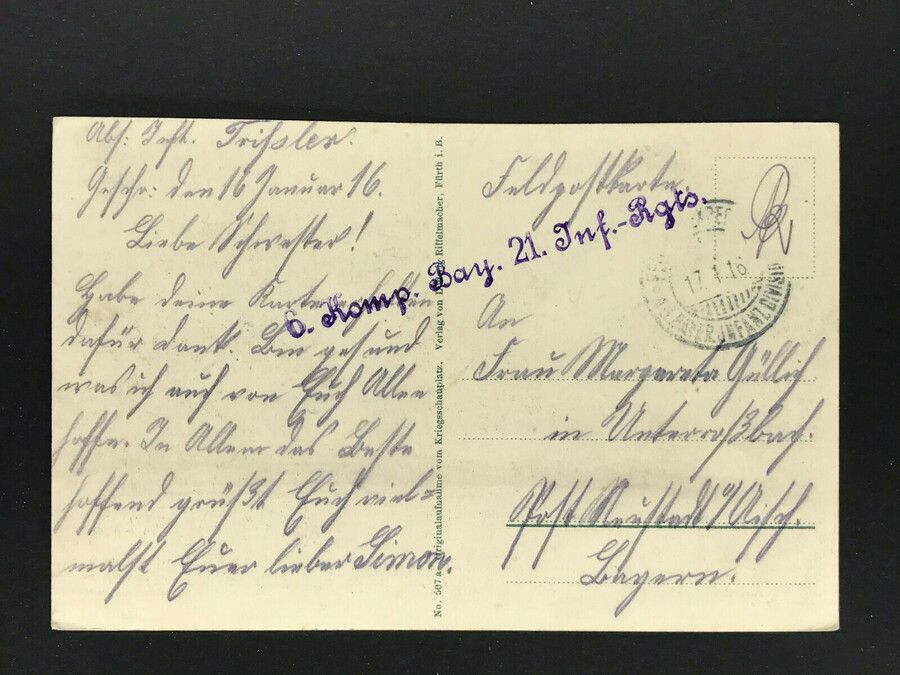 Abs: Inft. Trißler.
Geschr: den 16 Januar 16.
Liebe Schwester!
Habe deine Karte erhalten
dafür dank. Bin gesund
was ich auch von Euch Allen
hoffe. In Allem das Beste
hoffend grüßt Euch viel=
malst Euer lieber Simon.
No. 507 a. Originalaufnahme vom Kriegsschauplatz. Verlag von Riffelmacher, Fürth i. B.
6. Komp. Bay. 21. Inf.-Rgts.
Feldpostkarte
17.1.16
INFANT. DIVISION
An
Frau Margareta Güllich
in Unterroßbach.
Post Neustadt a/Aisch.
Bayern.